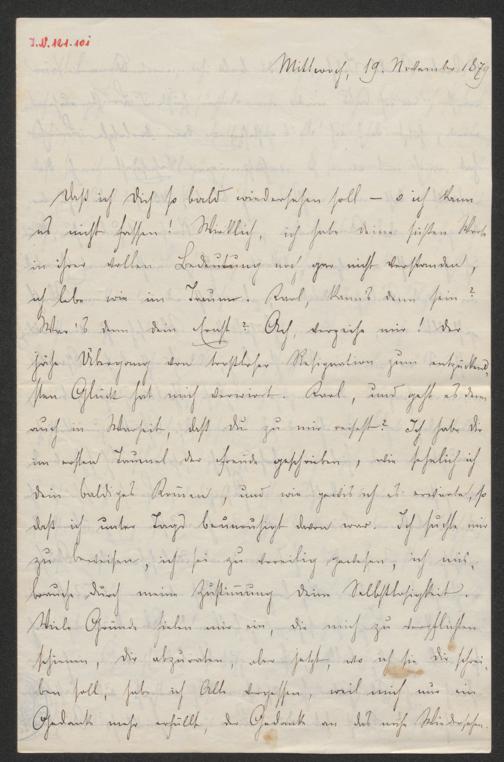 I.N. 121.101
Mittwoch, 19. November 1879
Daß ich Dich so bald wiedersehen soll — o ich kann
es nicht fassen! Wirklich, ich habe deine süßen Worte
in ihrer vollen Bedeutung noch gar nicht verstanden,
ich lebe wie im Traume. Karl, kann's denn sein?
War's denn dein Ernst? Ach, verzeihe mir! der
jähe Übergang von trostloser Resignation zum entzückend-
sten Glück hat mich verwirrt. Karl, und geht es denn
auch in Wahrheit, daß du zu mir reisest? Ich habe dir
im ersten Taumel der Freude geschrieben, wie sehnlich ich
dein baldiges Kommen, und wie gewiß ich es erwarte, so
daß ich unter Tags beunruhigt davon war. Ich suchte mir
zu beweisen, ich sei zu voreilig gewesen, ich mis-
brauche durch meine Zustimmung deine Selbstlosigkeit.
Viele Gründe fielen mir ein, die mich zu verpflichten
schienen, dir abzuraten, aber jetzt, wo ich sie dir schrei-
ben soll, habe ich Alle vergessen, weil mich nur ein
Gedanke mehr erfüllt, der Gedanke an das nahe Wiedersehen.